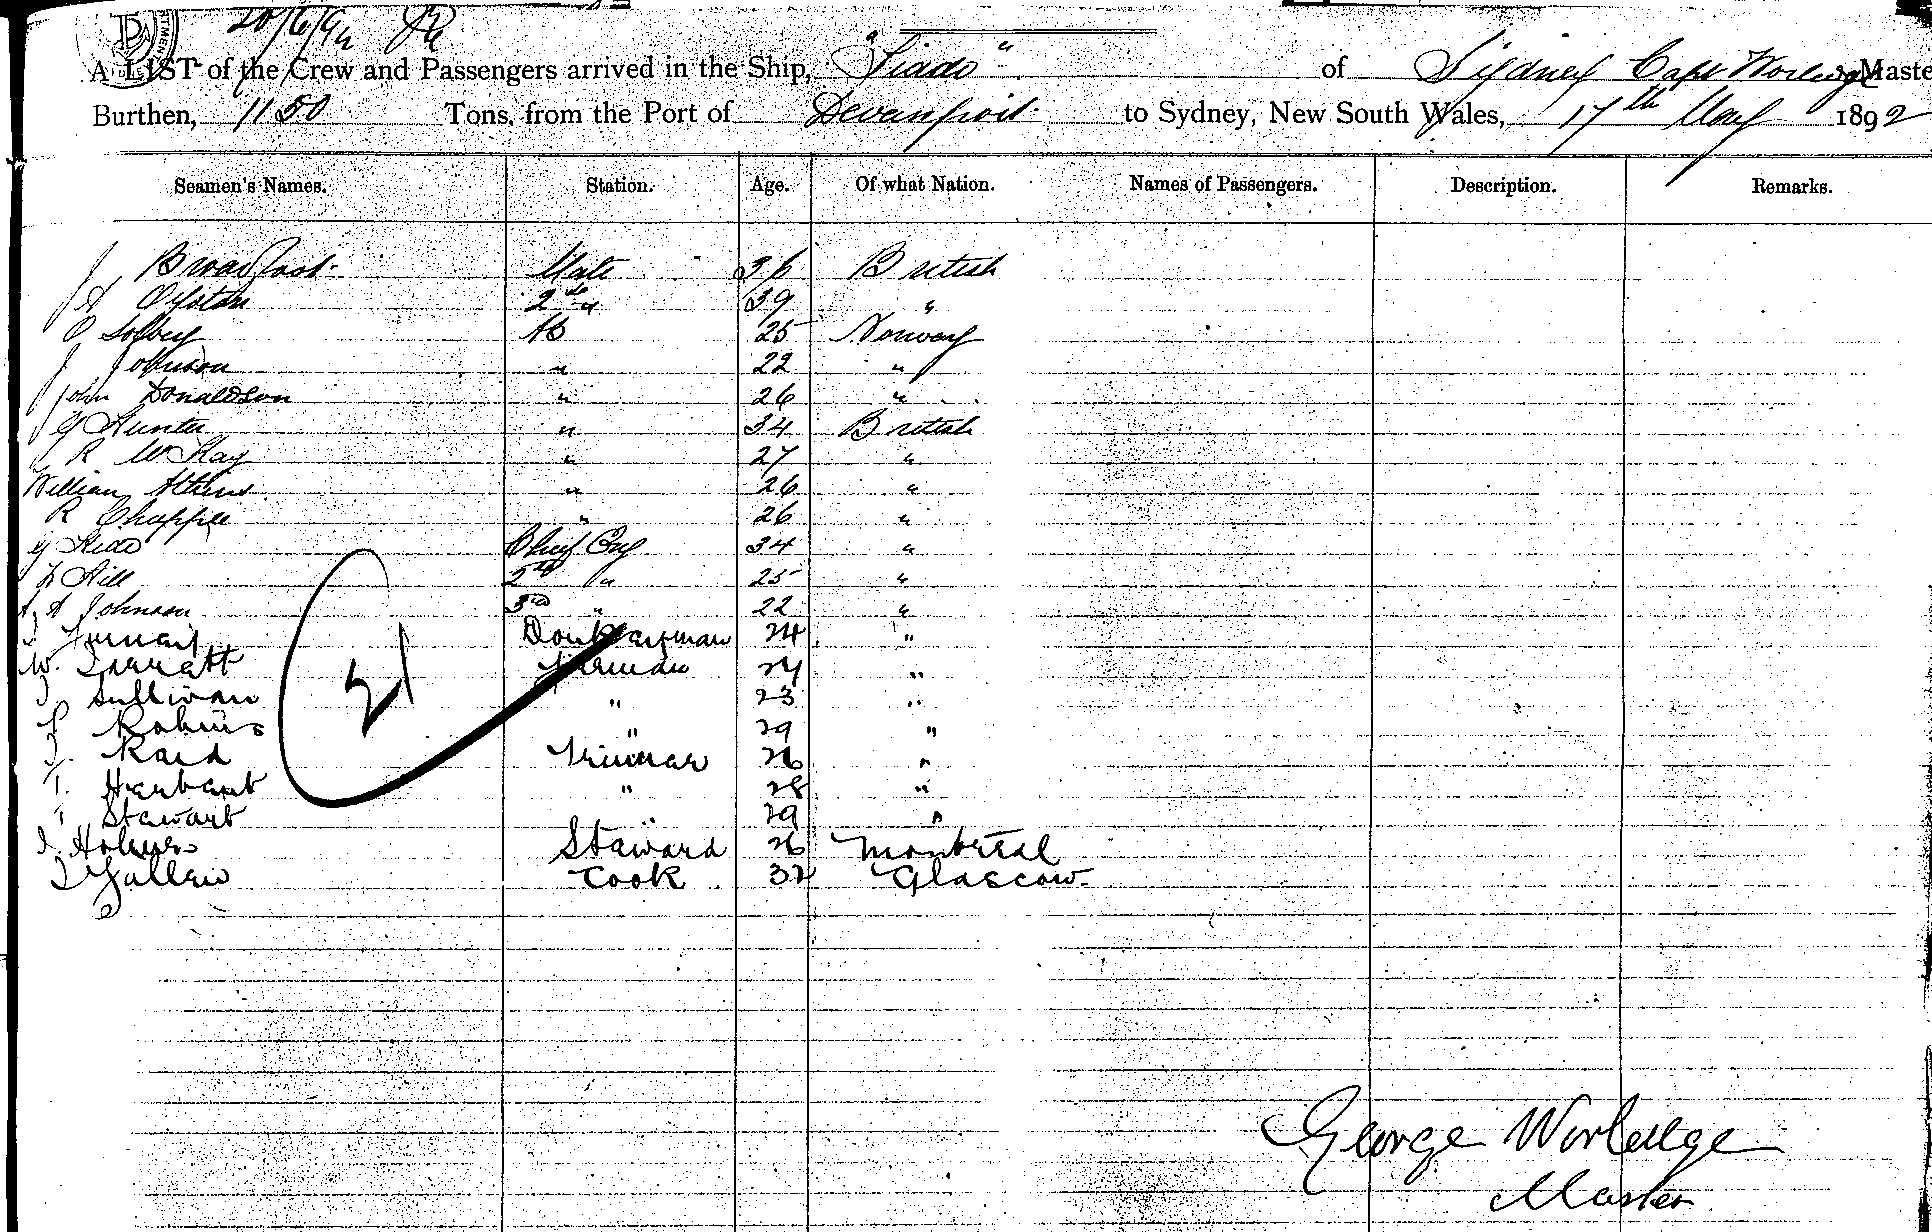 20/6/92
A LIST of the Crew and Passengers arrived in the Ship, " " of Sydney Capt Worledge Master
Burthen, 1150 Tons, from the Port of Devonport to Sydney, New South Wales, 17th May 1892
Seamen's Names. Station. Age. Of what Nation. Names of Passengers. Description. Remarks.
J Broadfoot Mate 36 British
A 2nd " 39 "
O Solberg AB 25 Norway
J Johnson " 22 "
John Donaldson " 26 "
G Hunter " 34 British
R McKay " 27 "
William " 26 "
R Chappell " 26 "
G Chief Eng 34 "
Hill 2nd " 25 "
A Johnson 3rd " 22 "
Donkeyman 24 "
W. Garratt Firman 24 "
Sullivan " 23 "
Robins " 29 "
Raid Trimmar 26 "
T. Harbart " 28 "
Stawart " 29 "
J. Holmes Staward 26 Montreal
Cook 32 Glascow
21
George Worledge
Master